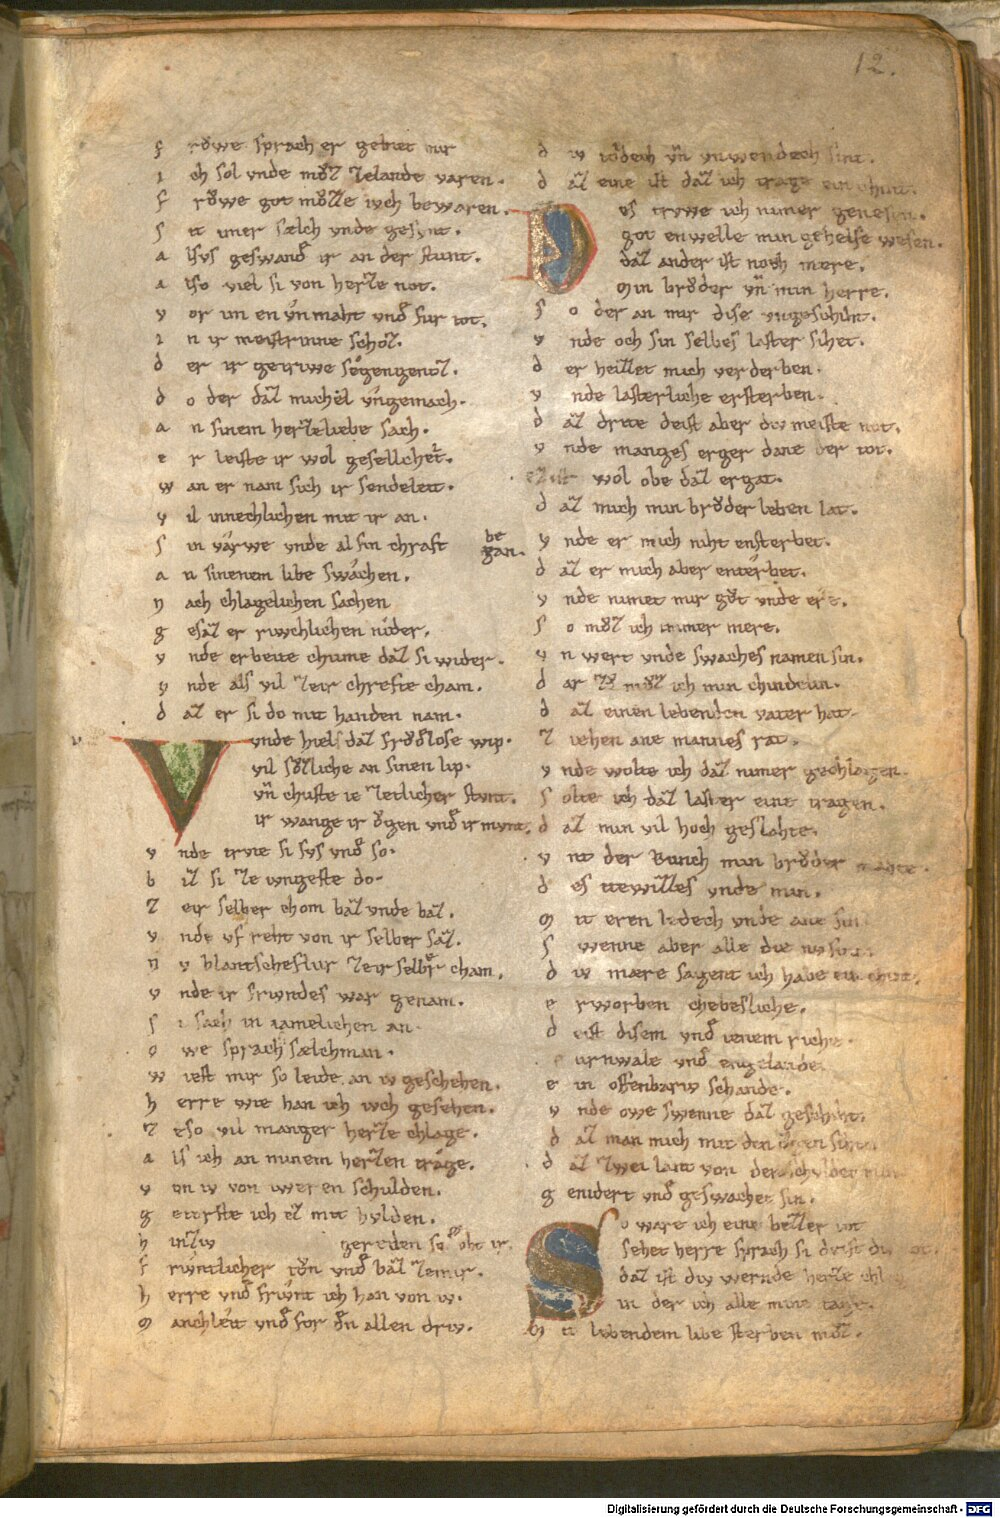 12.
f rŏwe sprach er gebiet mir
i ch sol vnde mŏz zelande varen.
f rŏwe got mŏzze ivch bewaren.
s it imer sælch vnde gesvnt.
a lsvs geswand ir an der stunt.
a lso viel si von herze not.
v or im en vnmaht vnd fur tot.
i n ir meistrinne schoz.
d er ir getriwe sŏgengenoz.
d o der daz michel vngemach.
a n sinem herzeliebe sach.
e r leiste ir wol gesellcheit.
w an er nam sich ir sendeleit.
v il innechlichen mit ir an.
s in varwe vnde al sin chraft be
gan.
a n sinenem libe swachen.
n ach chlagelichen sachen
g esaz er riwchlichen nider.
v nde erbeite chume daz si wider.
v nde als vil zeir chrefte cham.
d az er si do mit handen nam.
vnde hielf daz frŏdlose wip.
vil sŏzliche an sinen lip.
vñ chuste ie zetlicher stvnt.
ir wange ir ŏgen vnd ir mvnt.
v nde trvte si svs vnd so.
b iz si ze ivngeste do.
z eir selber chom baz vnde baz.
v nde vf reht von ir selber saz.
n v blantscheflur zeir selber cham.
v nde ir frivndes war genam.
s i sach in iamelichen an.
o we sprach sælchman.
w iest mir so leide an iv geschehen.
h erre wie han ich ivch gesehen.
z eso vil manger herze chlage.
a ls ich an minem herzen trage.
v on iv von iweren schulden.
g etorste ich ez mit hvlden.
h inziv gereden so moht ir.
f rivntlicher tŏn vnd baz zemir.
h erre vnd frivnt ich han von iv.
m anchleit vnd for ŏn allen driv.
d iv tŏdech vñ vnwendech sint.
d az eine ist daz ich trage ein chint.
es trvwe ich nimer genesen.
got enwelle min gehelfe wesen.
daz ander ist noch mere.
Min brŏder vñ min herre.
s o der an mir dise vngeschiht.
v nde och sin selbes laster sihet.
d er heizzet mich verderben.
v nde lasterliche ersterben.
d az drite deist aber div meiste not.
v nde manges erger dane der tot.
ez ist wol obe daz ergat.
d az mich min brŏder leben lat.
v nde er mich niht ensterbet.
d az er mich aber enterbet.
v nde nimet mir gŏt vnde ere.
s o mŏz ich immer mere.
v n wert vnde swaches namen sin.
d ar zŏ mŏz ich min chindelin.
d az einen lebenden vater hat.
z iehen ane mannes rat.
v nde wolte ich daz nimer gechlagen.
s olte ich daz laster eine tragen.
d az min vil hoch geslahte.
v nt der kunich min brŏder mahte.
d es itewizzes vnde min.
m it eren ledech vnde ane sin
s wenne aber alle die
d iv mære sagent ich habe ein chint.
e rworben chebesliche.
d eist disem vnd ienem riche.
c urnwale vnd engelande.
e in offenbariv schande.
v nde owe swenne daz geschiht.
d az man mich mit den ŏgen siht
d az zwei lant von der schvlde min
g enidert vnd geswachet sin.
so ware ich eine bezzer tot
sehet herre sprach si deist div not.
daz ist div wernde herze chlage
in der ich alle mine tage.
m it lebendem libe sterben mŏz.
Digitalisierung gefördert durch die Deutsche Forschungsgemeinschaft - DFG